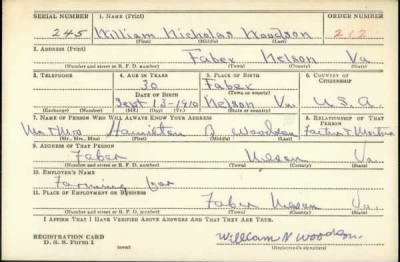 SERIAL NUMBER 1. NAME (Print) ORDER NUMBER
245 William Nicholas Woodson 212
(First) (Middle) (Last)
2. ADDRESS (Print)
Faber Nelson Va
(Number and street or R. F. D. number) (Town) (County) (State)
3. TELEPHONE 4. AGE IN YEARS 5. PLACE OF BIRTH 6. COUNTRY OF CITIZENSHIP
30 Faber
DATE OF BIRTH (Town or county)
Sept 13-1910 Nelson Va U.S.A.
(Exchange) (Number) (Mo.) (Day) (Yr.) (State or country)
7. NAME OF PERSON WHO WILL ALWAYS KNOW YOUR ADDRESS 8. RELATIONSHIP OF THAT PERSON
Mr & Mrs Hamilton Woodson Father & Mother
(Mr., Mrs., Miss) (First) (Middle) (Last)
9. ADDRESS OF THAT PERSON
Faber Nelson Va
(Number and street or R. F. D. number) (Town) (County) (State)
10. EMPLOYER'S NAME
Farming
11. PLACE OF EMPLOYMENT OR BUSINESS
Faber Nelson Va.
(Number and street or R. F. D. number) (Town) (County) (State)
I AFFIRM THAT I HAVE VERIFIED ABOVE ANSWERS AND THAT THEY ARE TRUE.
REGISTRATION CARD
D. S. S. Form 1 William N Woodson
(over) (Registrant's signature)